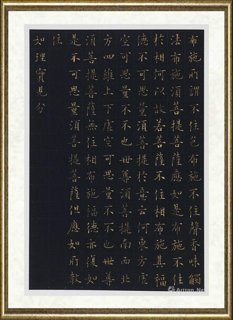 布施所謂不住色布施不住聲香味觸
法布施須菩提菩薩應如是布施不住
於相何以故若菩薩不住相布施其福
德不可思量須菩提於意云何東方虛
空可思量不不也世尊須菩提南西北
方四維上下虛空可思量不不也世尊
須菩提菩薩無住相布施福德亦復如
是不可思量須菩提菩薩但應如所教
住
如理實見分